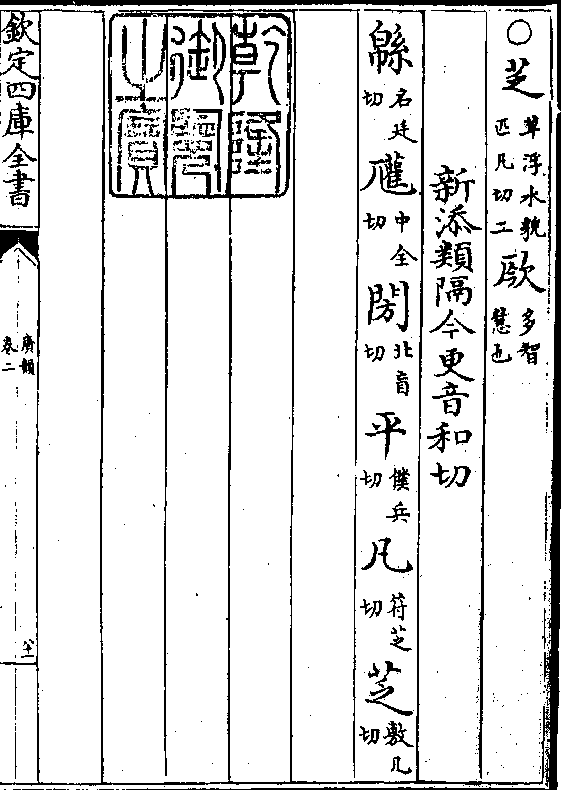 ○芝草浮水貌匹凡切二 多智慧也
新添類隔今更音和切
緜名延切 中全切閍北盲切平僕兵切凡符芝切芝敷凡切
乾隆
御覽
之寶
欽定四庫全書
廣韻
卷二
八十一